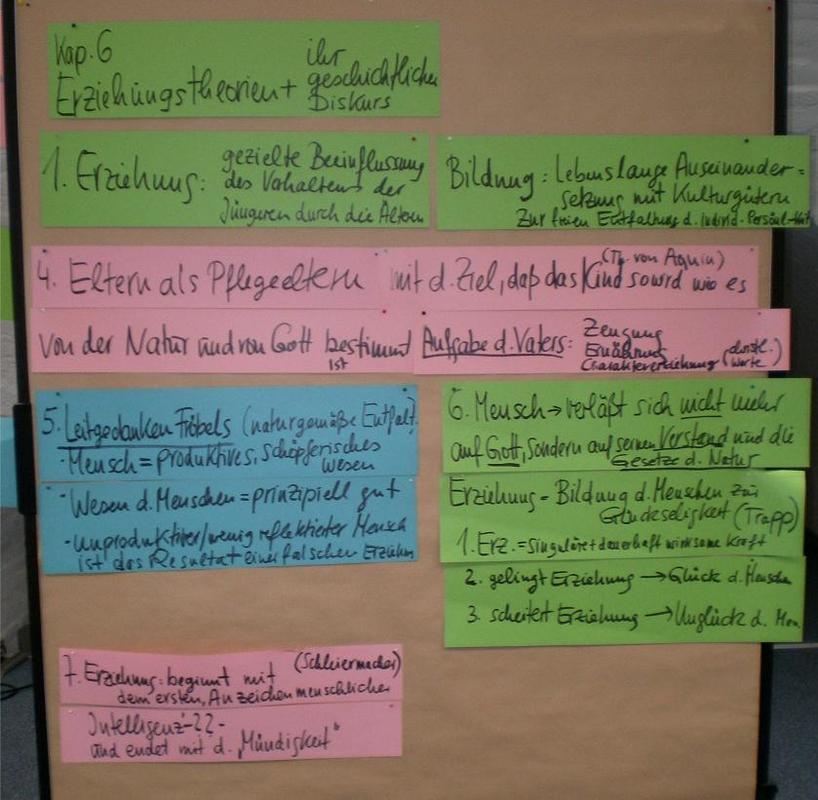 Kap. 6
Erziehungstheorien + ihr
geschichtlicher
Diskurs
1. Erziehung: gezielte Beeinflussung
des Verhaltens der
Jüngeren durch die Älteren
Bildung: Lebenslange Auseinander=
setzung mit Kulturgütern
Zur freien Entfaltung d. individ. Persönl-keit
4. Eltern als Pflegeeltern mit d. Ziel, daß das Kind so wird wie es
(Th. von Aquin)
von der Natur und von Gott bestimmt
ist
Aufgabe d. Vaters: Zeugung
Ernährung
Charaktererziehung (christl.
Werte)
5. Leitgedanken Fröbels (naturgemäße Entfalt.
- Mensch = produktives, schöpferisches
Wesen
- Wesen d. Menschen = prinzipiell gut
- unproduktiver/wenig reflektierter Mensch
ist das Resultat einer falschen Erziehn
6. Mensch → verläßt sich nicht mehr
auf Gott, sondern auf seinen Verstand und die
Gesetze d. Natur
Erziehung = Bildung d. Menschen zur
Glückseligkeit (Trapp)
1. Erz. = singuläre + dauerhaft wirksame Kraft
2. gelingt Erziehung → Glück d. Menschen
3. scheitert Erziehung → Unglück d. Men.
7. Erziehung: beginnt mit (Schleiermacher)
dem ersten, Anzeichen menschlicher
Intelligenz -??-
und endet mit d. „Mündigkeit"